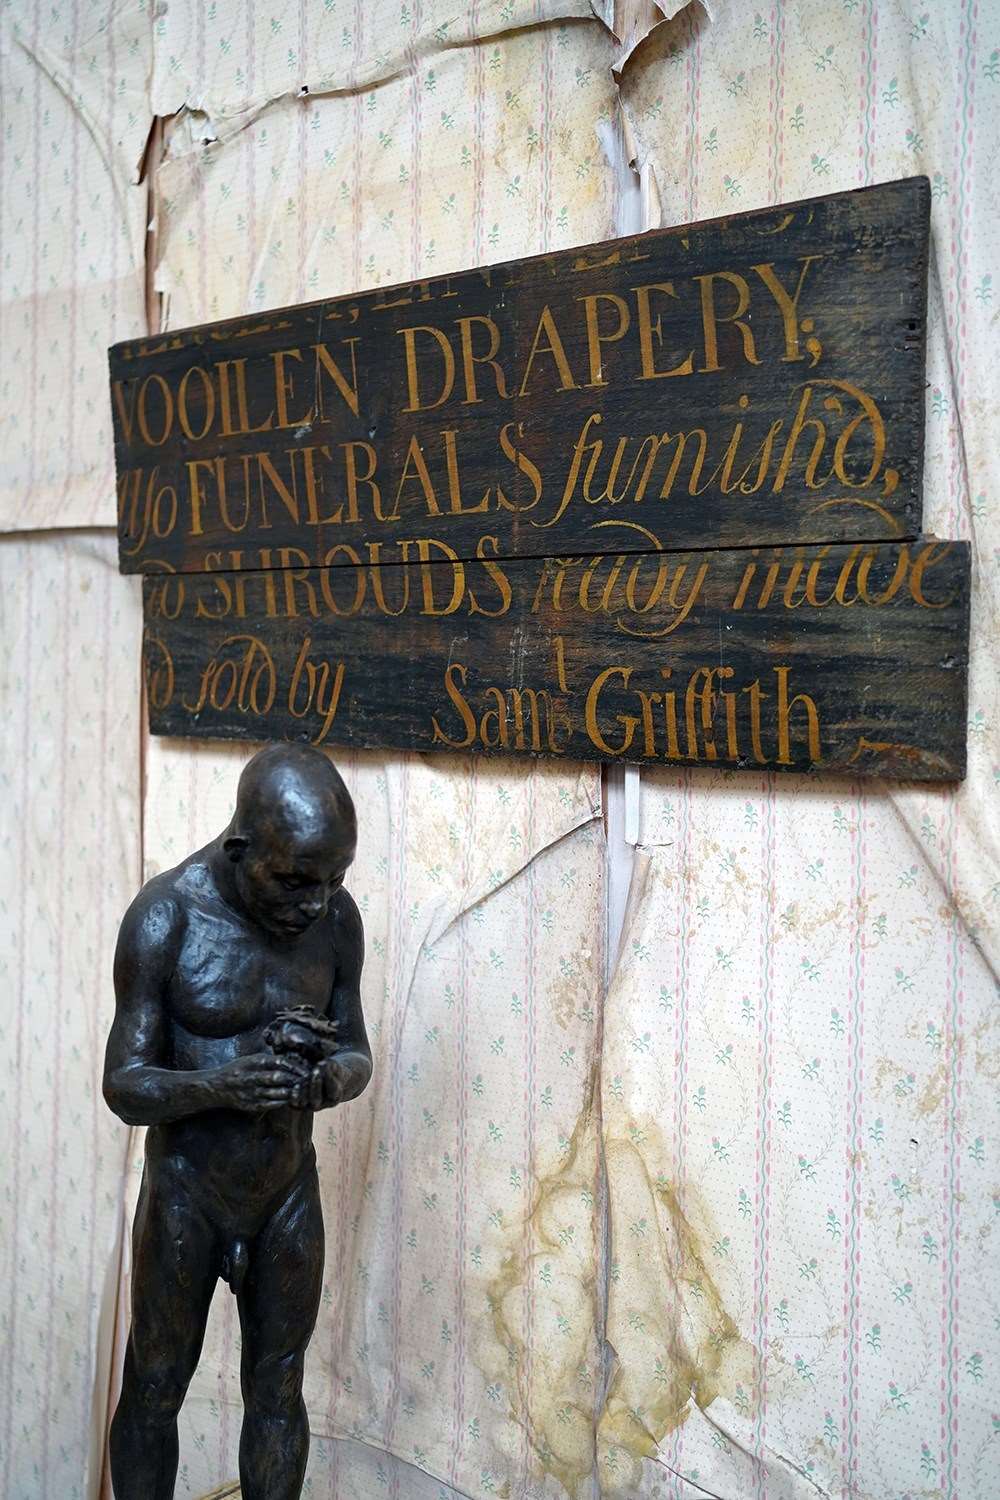 WOOLLEN DRAPERY;
also FUNERALS furnish'd,
SHROUDS ready made
sold by Saml Griffith